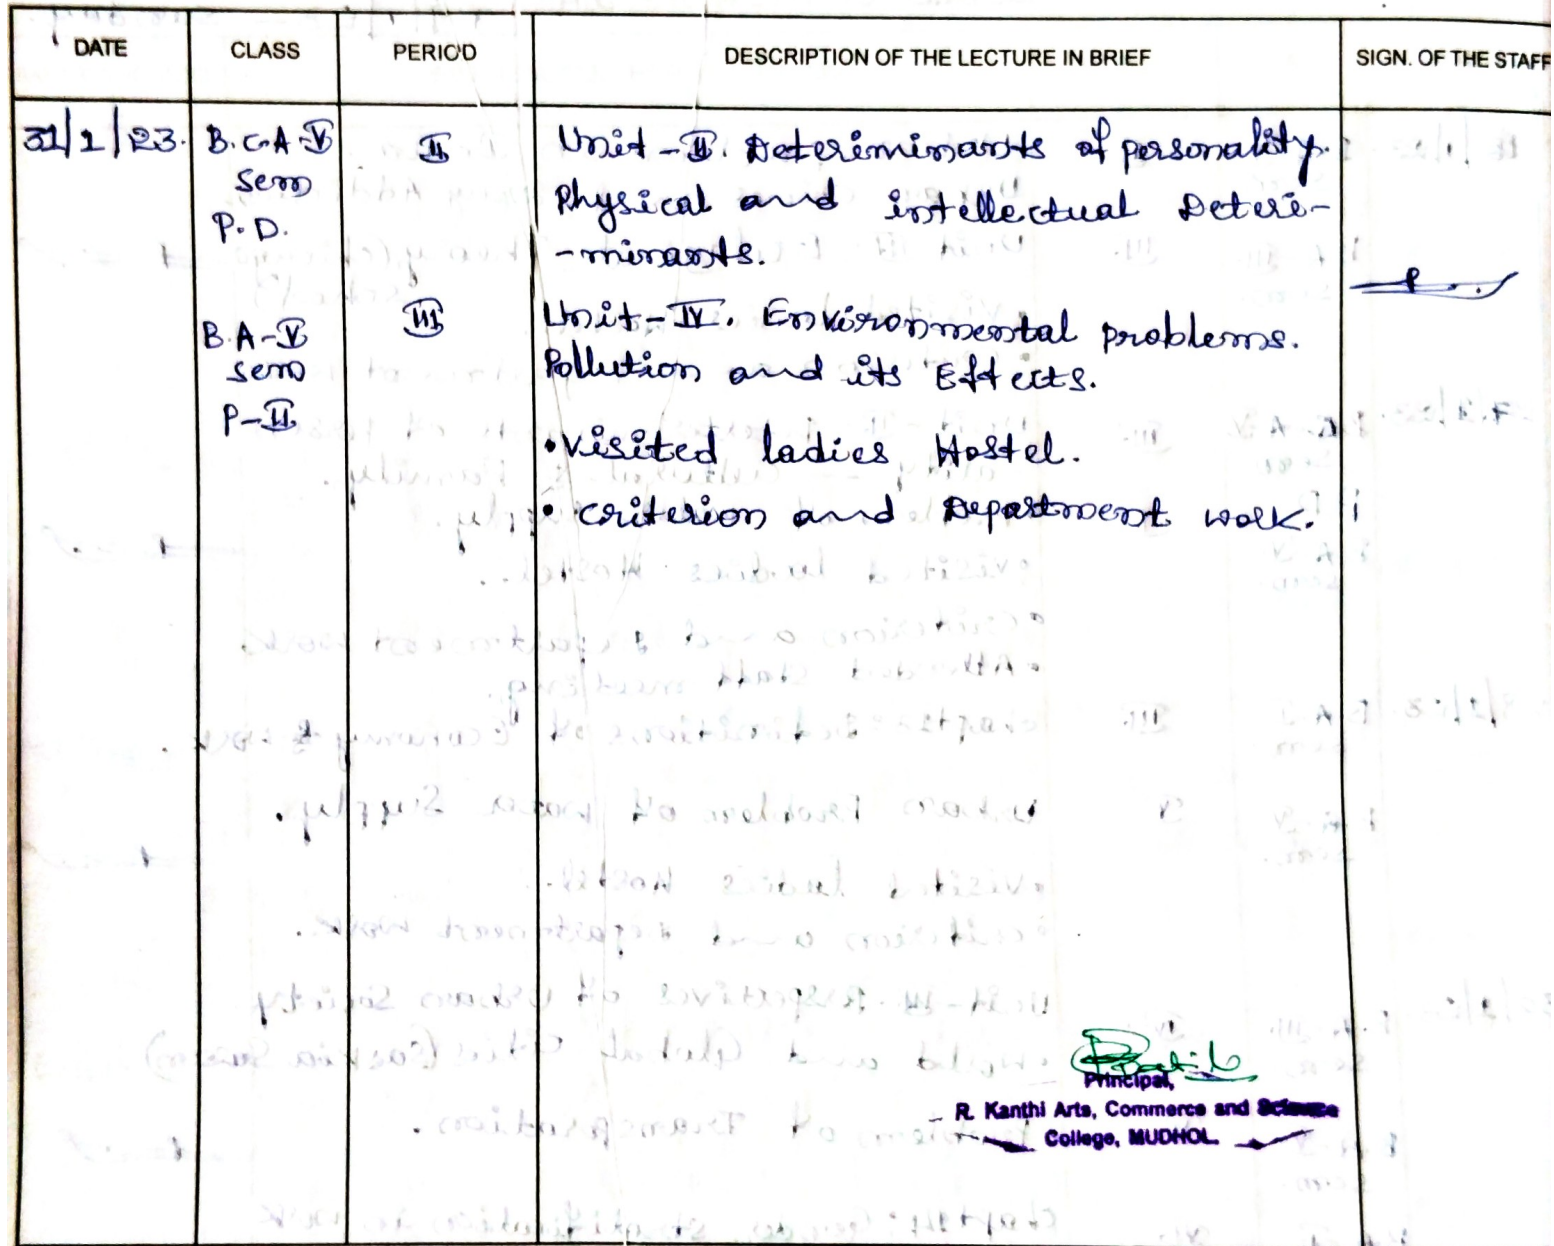 DATE CLASS PERIOD DESCRIPTION OF THE LECTURE IN BRIEF SIGN. OF THE STAFF
31/1/23. B.C.A-V II Unit-II. Deteriminants of personality.
sem Physical and intellectual Deteri-
P.D. -minants.
B.A-V III Unit-IV. Environmental problems.
sem Pollution and its Effects.
P-II
• Visited ladies Hostel.
• criterion and Department work.
Principal,
R. Kanthi Arts, Commerce and Science
College, MUDHOL.